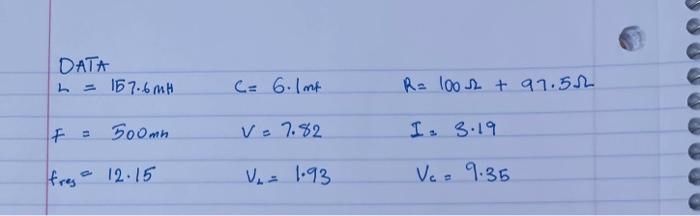 DATA
L = 157.6mH C= 6.1mf R= 100Ω + 97.5Ω
F = 500mh V = 7.82 I = 3.19
fres = 12.15 VL = 1.93 Vc = 9.35